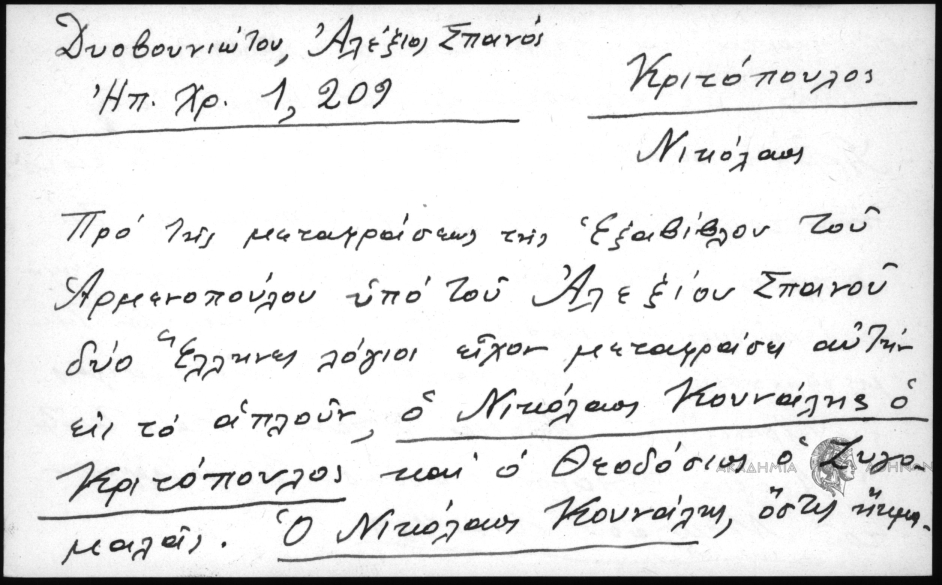 Δυοβουνιώτου, Ἀλέξιος Σπανός
Ἠπ. Χρ. 1, 209
Κριτόπουλος
Νικόλαος
Πρό τῆς μεταφράσεως τῆς Ἑξαβίβλου τοῦ
Ἁρμενοπούλου ὑπό τοῦ Ἀλεξίου Σπανοῦ
δύο Ἕλληνες λόγιοι εἶχον μεταφράσει αὐτήν
εἰς τό ἁπλοῦν, ὁ Νικόλαος Κουνάλης ὁ
Κριτόπουλος καί ὁ Θεοδόσιος ὁ Ζυγο-
μαλᾶς. Ὁ Νικόλαος Κουνάλης, ὅστις ἤκμα-
ΑΚΑΔΗΜΙΑ ΑΘΗΝΩΝ